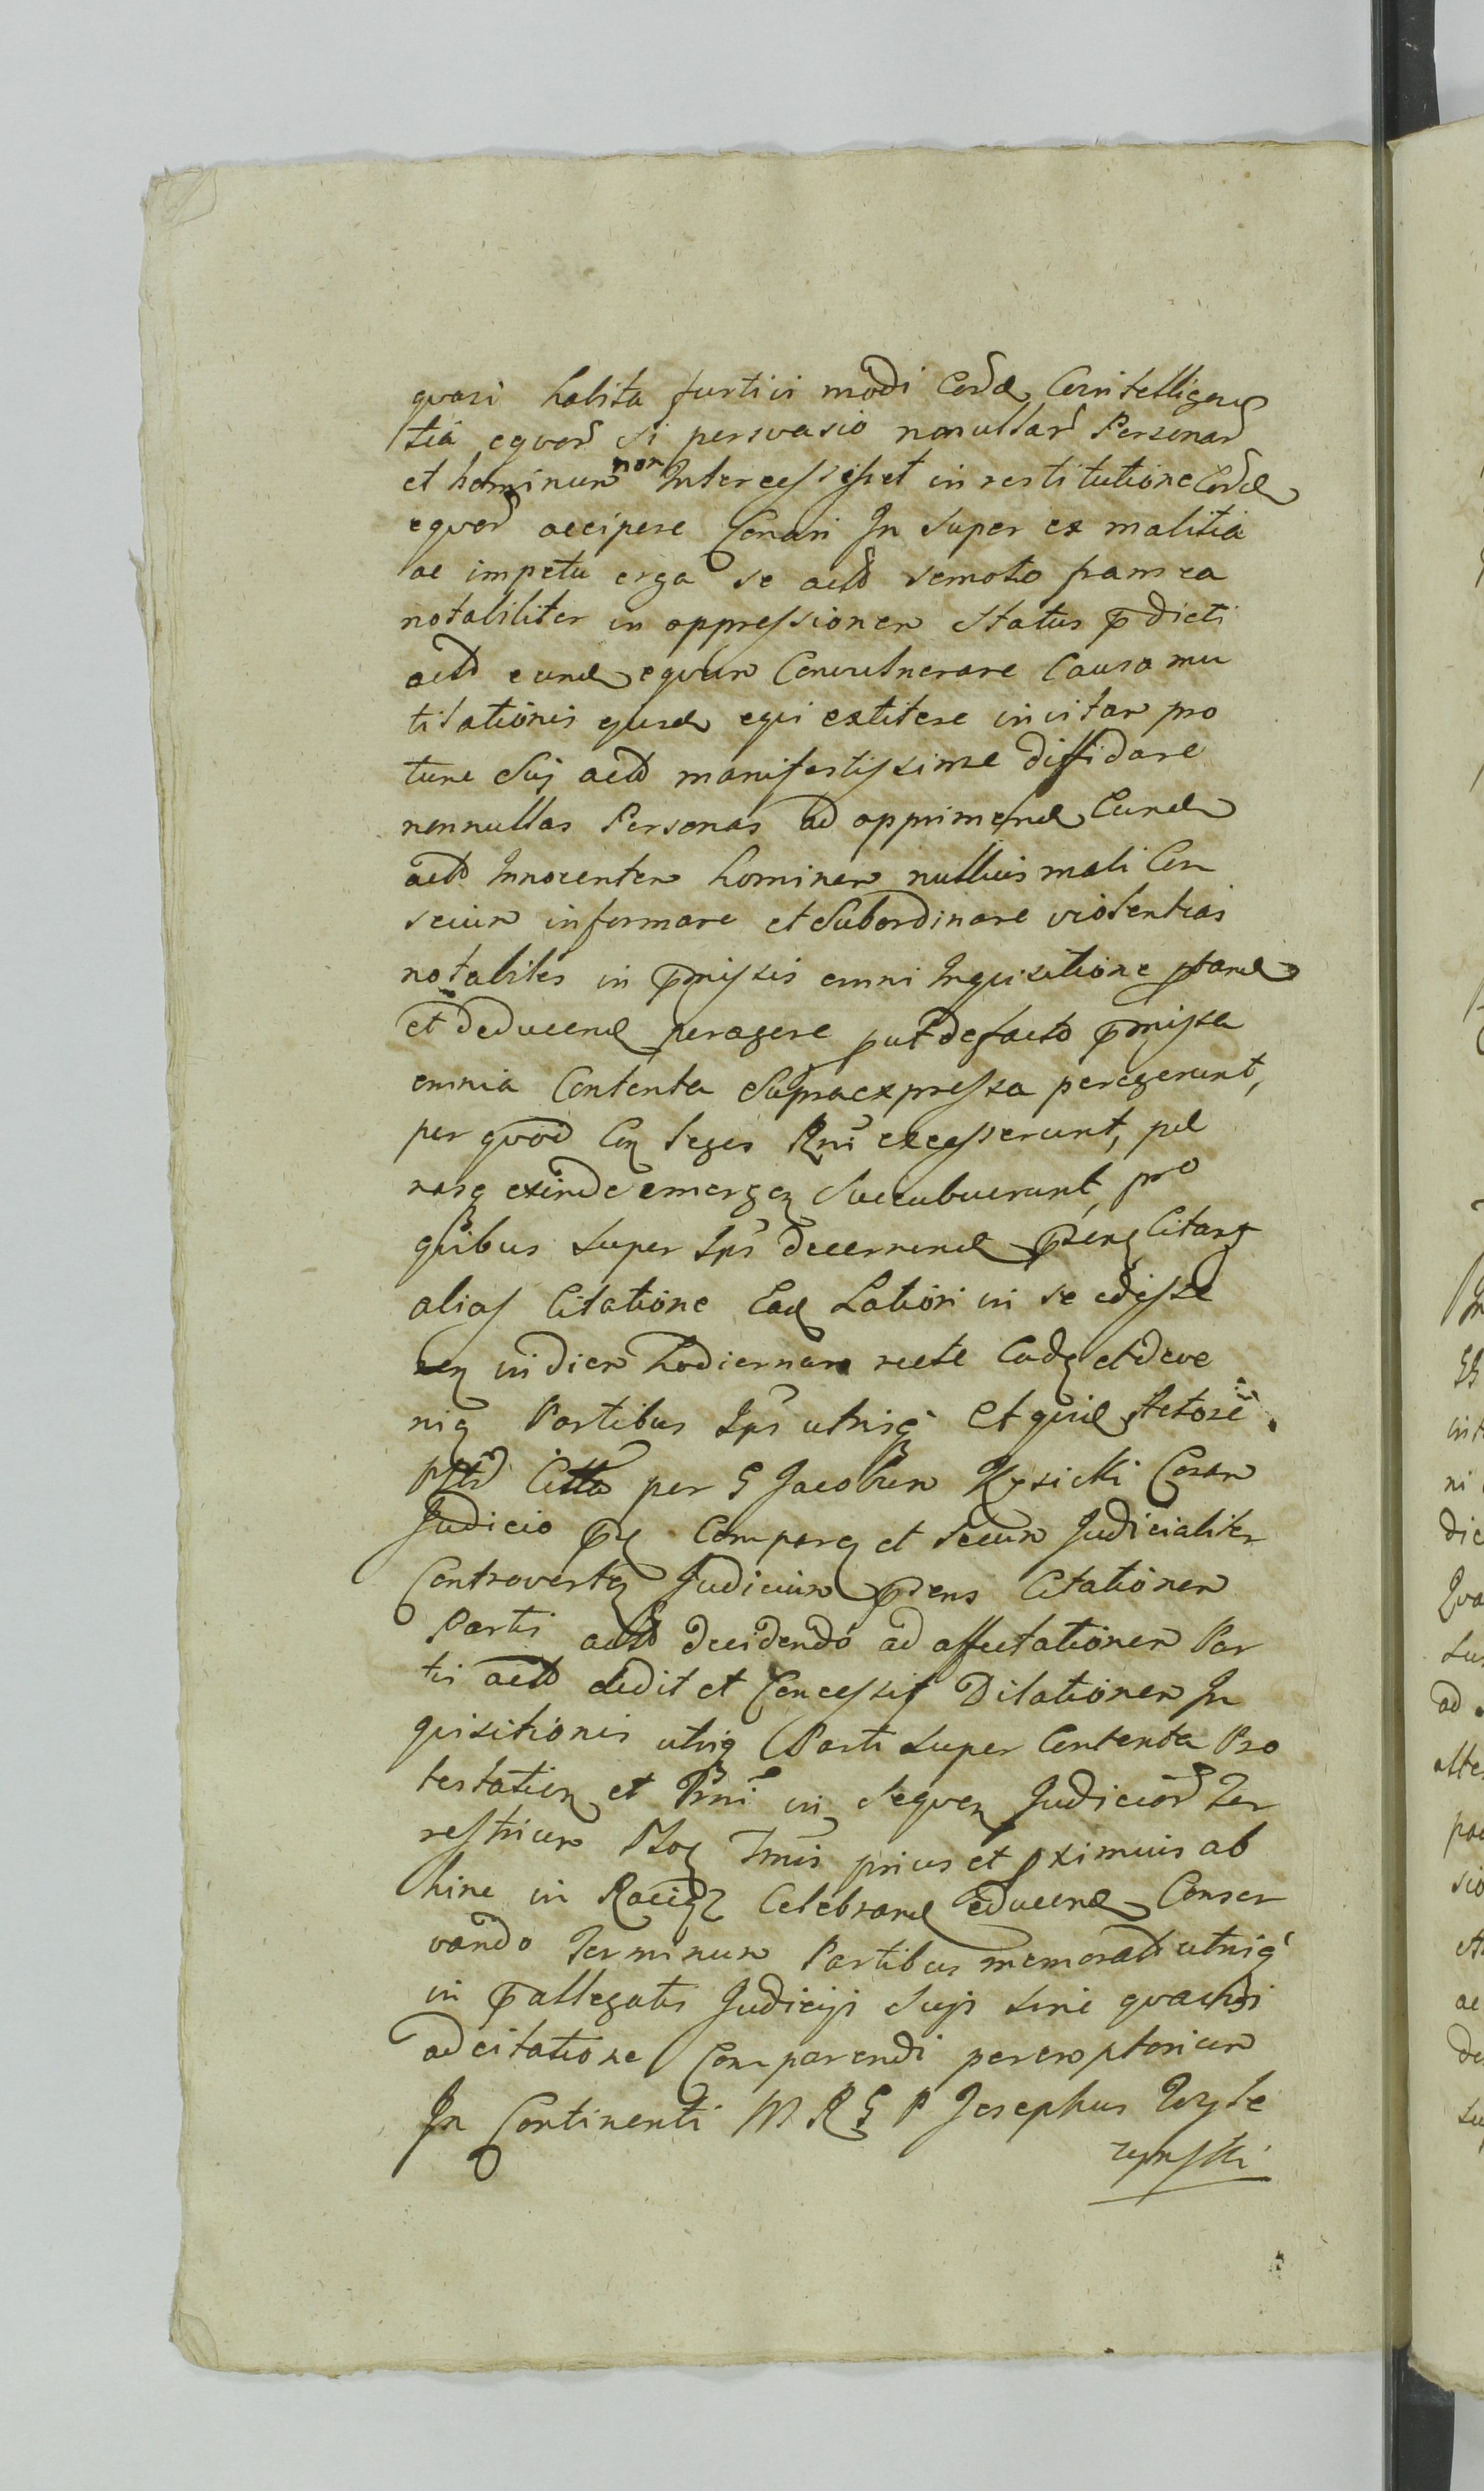 quasi habita furtivi modi Eord Cointelligen
tia equor si persuasio nonullar Personar
et hominum non Intercessisset in restitutione Eord
equor accipere Conari In super ex malitia
ac impetu erga se acto semoto framea
notabiliter in oppressionem status pdicti
acto eund equum Convulnerare Causa mu
tilationis ejusd equi extitere invitar pro
tunc Suj acto manifestissime diffidare
nonnullas Personas ad opprimend Eund
acto Innocentem hominem nullius mali Con
scium informare et Subordinare violentias
notabiles in pmissis omni Inquisitione pband
et deducend peragere put de facto pmissa
omnia Contenta Supraexpressa peregerunt,
per quod Con leges Rni excesserunt, pae
nasq exinde emergen Succubuerunt, pro
quibus super Ips decernend psenq Citarq
alias Citatione Ead Latiori in se edisse
ren in diem hodiernam recte Cadq et deve
niq Partibus Ips utrisq Et quid Actore
Citta per G Jacobum Kysicki Coram
Judicio pti Comparen et Secum Judicialiter
Controverten Judicium psens Citationem
Partis acto decidendo ad affectationem Par
tis acto dedit et Concessit Dilationem In
quisitionis utriq Parti super Contenta Pro
testation et in Sequen Judicior Ter
restrium Tmis prius et pximius ab
hinc in Celebrand educend Conser
vando Terminum Partibus memorat utrisq
in pallegatis Judicijs Sujs sine quavisi
adcitatione Comparendi peremptorium
In Continenti M R G P Josephus Wyle
zynski